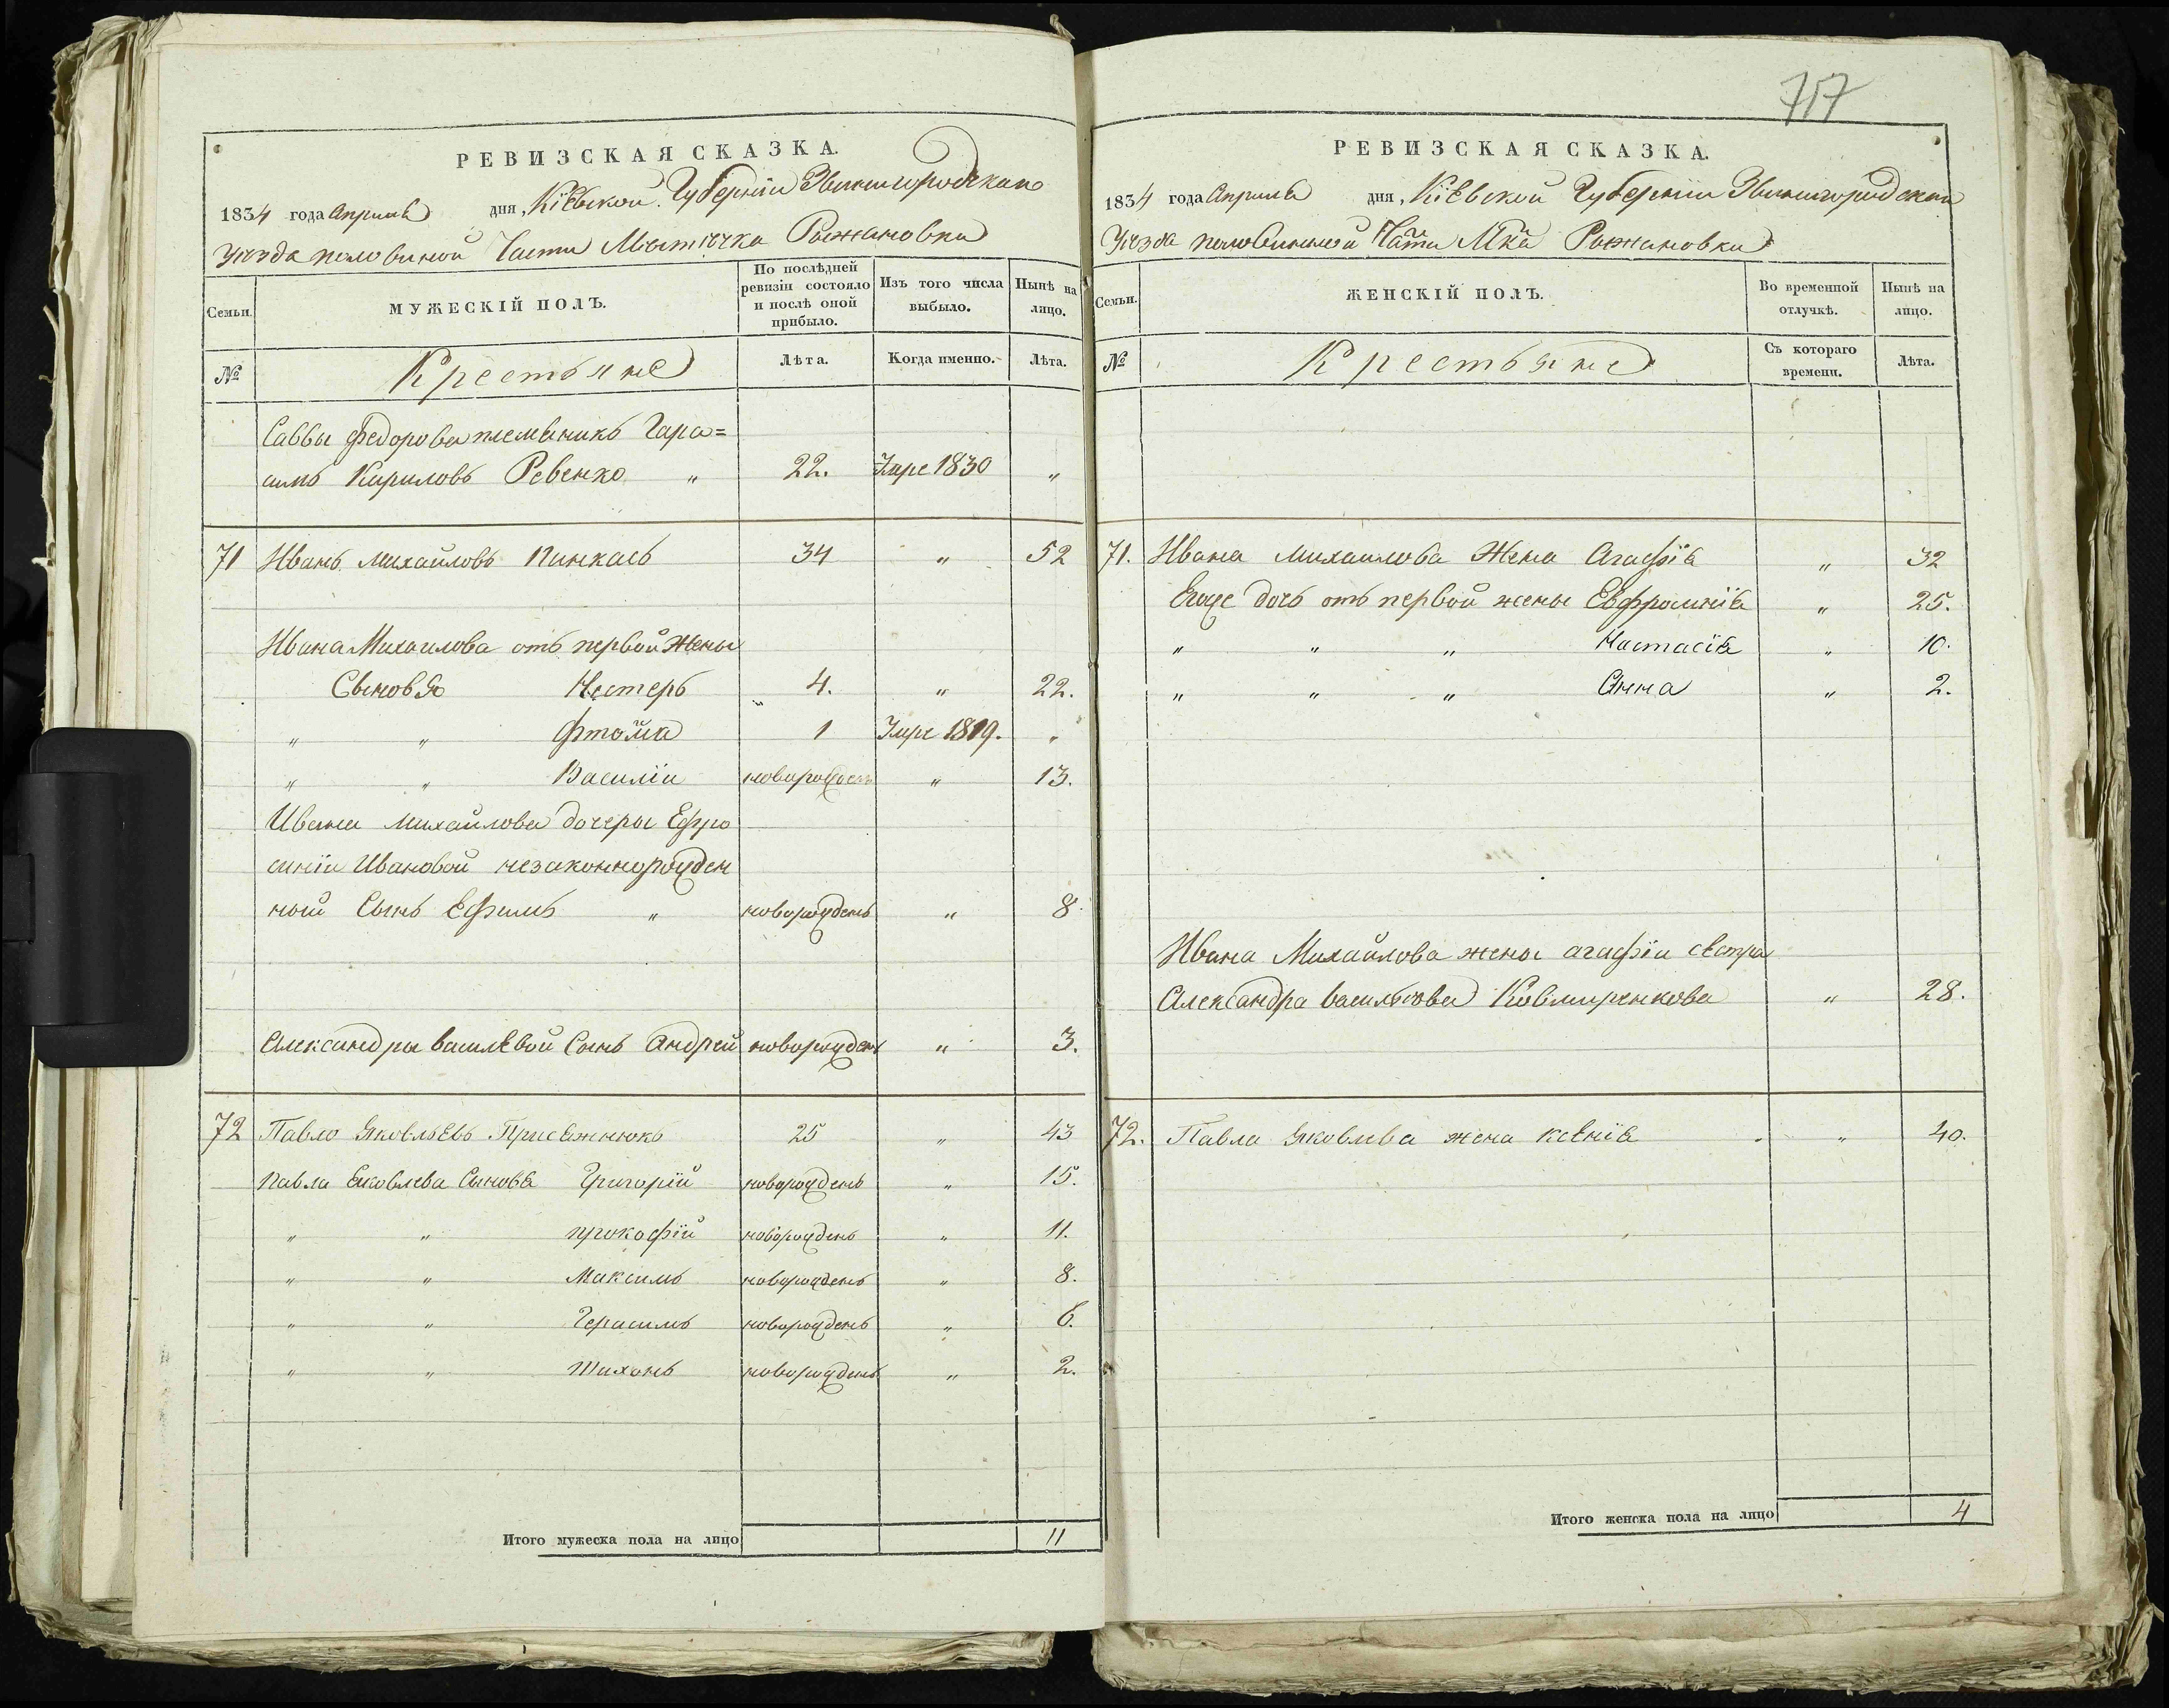 717
РЕВИЗСКАЯ СКАЗКА.
1834 года Апреля дня, Кіевской Губерніи Звенигородскаго
Уезда половиной Части Местечка Рыжановки
Семьи.
МУЖЕСКІЙ ПОЛЪ.
По послѣдней ревизіи состояло и послѣ оной прибыло.
Изъ того числа выбыло.
Нынѣ на лицо.
№
Крестьяне
Лѣта.
Когда именно.
Лѣта.
Саввы Федорова племеникъ Гара=
симъ Кириловъ Ревенко " 22. Умре 1830 "
71 Иванъ Михайловъ Пинкасъ 34 " 52
Ивана Михаилова отъ первой жены
Сыновя Нестеръ 4. " 22.
" " 1 Умре 1819. "
" " Василіи новорожденъ " 13.
Ивана Михайлова дочеры Ефро
синіи Ивановой незаконнорожден
ный Сынъ Ефимъ " новорожденъ " 8.
Александры василевой Сынъ Андрей новорожденъ " 3.
72 Павло Яковлъевъ Присежнюкъ 25 " 43
Павла Яковлева Сынова Григорій новорожденъ " 15.
" " прокофій новорожденъ " 11.
" " Максимъ новорожденъ " 8.
" " Герасимъ новорожденъ " 6.
" " Тихонъ новорожденъ " 2.
Итого мужеска пола на лицо 11
РЕВИЗСКАЯ СКАЗКА.
1834 года Апреля дня, Кіевской Губерніи Звенигородскаго
Уезда половинной Части Мка Рыжановки
Семьи.
ЖЕНСКІЙ ПОЛЪ.
Во временной отлучкѣ.
Нынѣ на лицо.
№
Крестьяне
Съ котораго времени.
Лѣта.
71. Ивана Михаилова Жена Агафія " 32
Егоже дочъ отъ первой жены Евфросинія " 25.
" " " Настасія " 10.
" " " Анна " 2.
Ивана Михайлова жены агафіи сестра
Александра васильева " 28.
72. Павла Яковлева жена ксенія " " 40.
Итого женска пола на лицо 4